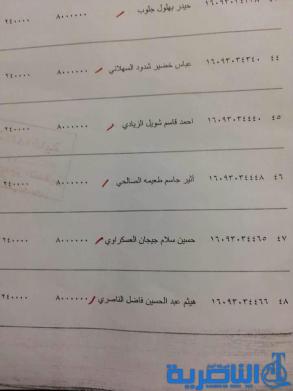 حيدر بهلول جلوب ٨٠٠٠٠٠٠ ٢٤٠٠٠٠
٤٤ ١٦٠٩٣٠٣٤٣٤٠ عباس خضير شدود السهلاني ٨٠٠٠٠٠٠ ٢٤٠٠٠٠
٤٥ ١٦٠٩٣٠٣٤٤٤٠ احمد قاسم شويل الزيادي ٨٠٠٠٠٠٠ ٢٤٠٠٠٠
٤٦ ١٦٠٩٣٠٣٤٤٤٨ أثير جاسم طعيمه الصالحي ٨٠٠٠٠٠٠ ٢٤٠٠٠٠
٤٧ ١٦٠٩٣٠٣٤٤٦٥ حسين سلام جيجان العسكراوي ٨٠٠٠٠٠٠ ٢٤٠٠٠٠
٤٨ ١٦٠٩٣٠٣٤٤٦٦ هيثم عبد الحسين فاضل الناصري ٨٠٠٠٠٠٠ ٢٤٠٠٠٠
الناصرية